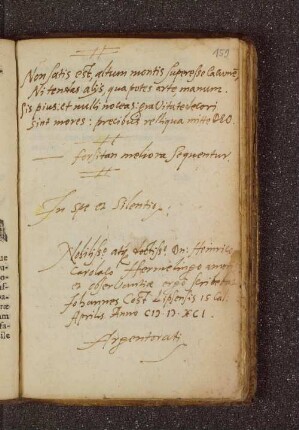 159
Non satis est, altum montis superesse cacumen,
Ni tentas alijs, qua potes arte, manum.
Sis pius, et nulli noceas: gravitate severi
Sint mores: precibus reliqua mitte DEO.
forsitan meliora sequentur.
In spe et silentio.
Nobiliss.º atq. Dn. Heinrico
Carolo
et observantiæ ergo scribebat
Johannes Lipsensis 15 Cal.
Aprilis Anno CIƆ.IƆ.XCI.
Argentorati